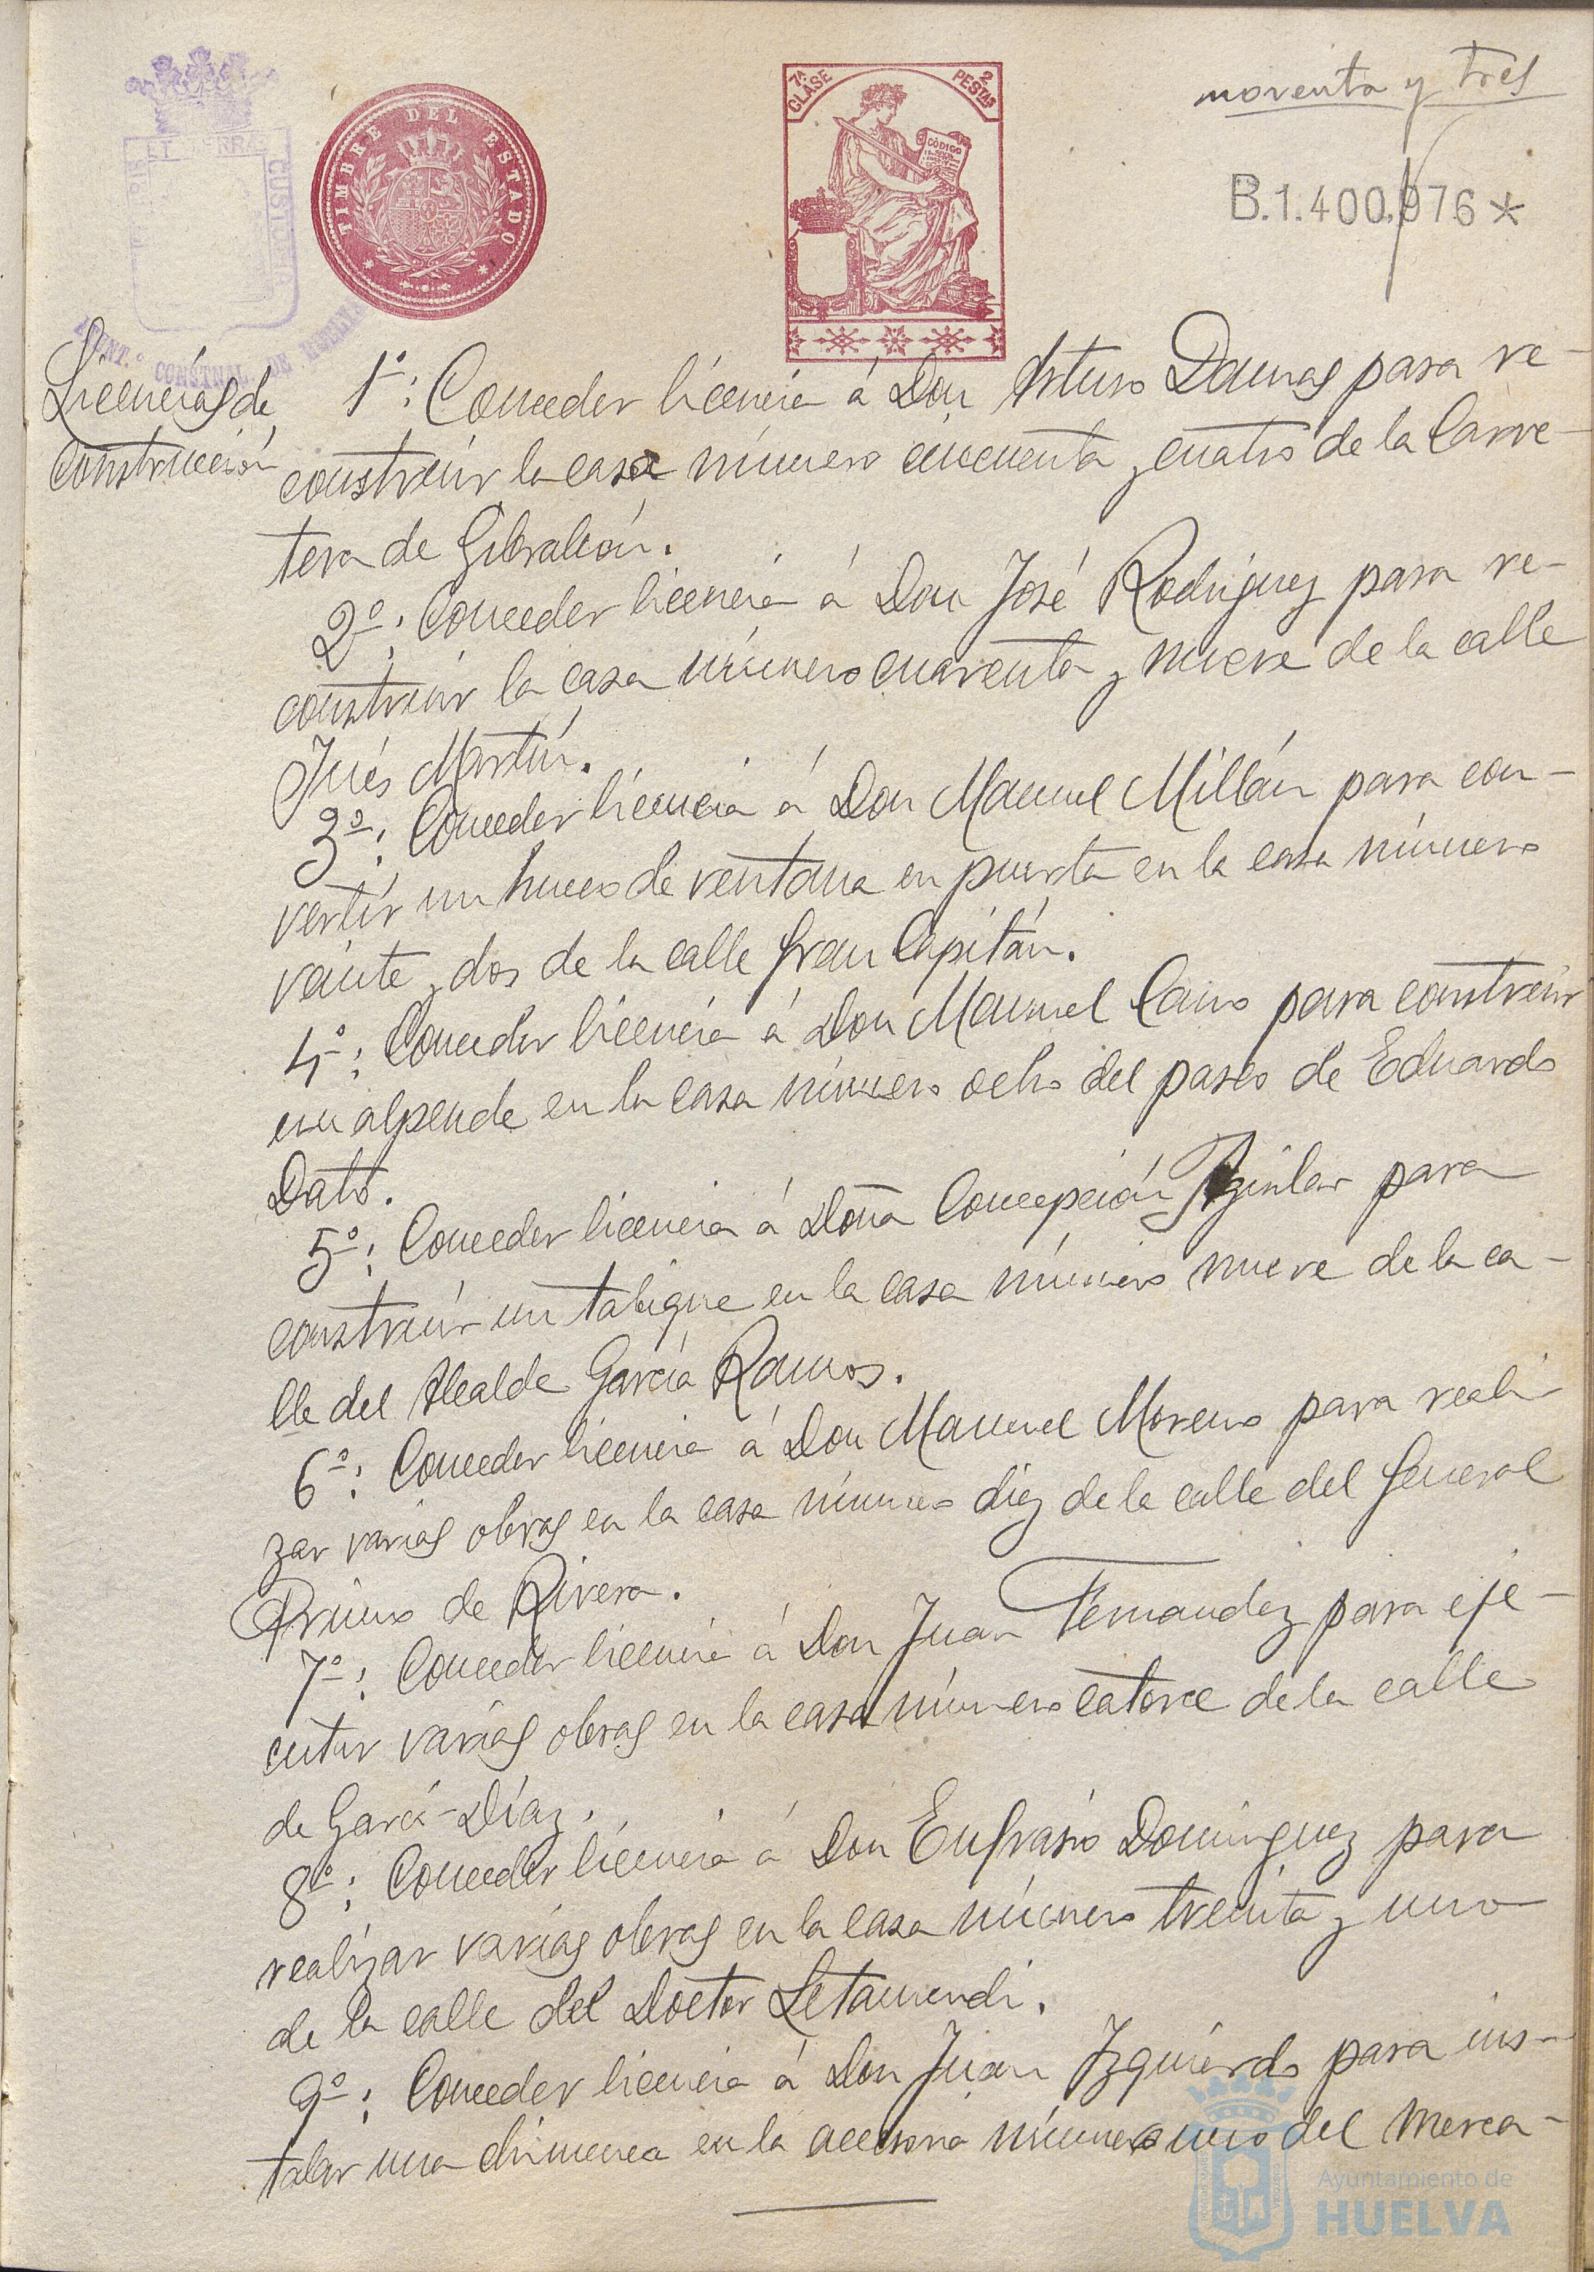 noventa y tres
TIMBRE DEL ESTADO
7ª CLASE 2 PESTAS
CÓDIGO
B.1.400.976*
Licencias de
construcción
1º: Conceder licencia á Don Arturo Damas para re-
construir la casa número cincuenta y cuatro de la Carre-
tera de Gibraleón.
2º: Conceder licencia á Don José Rodriguez para re-
construir la casa número cuarenta y nueve de la calle
Inés Martín.
3º: Conceder licencia á Don Manuel Millán para con-
vertir un hueco de ventana en puerta en la casa número
veinte y dos de la calle Gran Capitán.
4º: Conceder licencia á Don Manuel Cano para construir
un alpende en la casa número ocho del paseo de Eduardo
Dato.
5º: Conceder licencia á Doña Concepción Aguilar para
construir un tabique en la casa número nueve de la ca-
lle del Alcalde García Ramos.
6º: Conceder licencia á Don Manuel Moreno para reali-
zar varias obras en la casa número diez de la calle del General
Primo de Rivera.
7º: Conceder licencia á Don Juan Fernandez para eje-
cutar varias obras en la casa número catorce de la calle
de Garci-Díaz.
8º: Conceder licencia á Don Eufrasio Dominguez para
realizar varias obras en la casa número treinta y uno
de la calle del Doctor Letamendi.
9º: Conceder licencia á Don Juan Izquierdo para ins-
talar una chimenea en la accesoria número uno del merca-
Ayuntamiento de
HUELVA